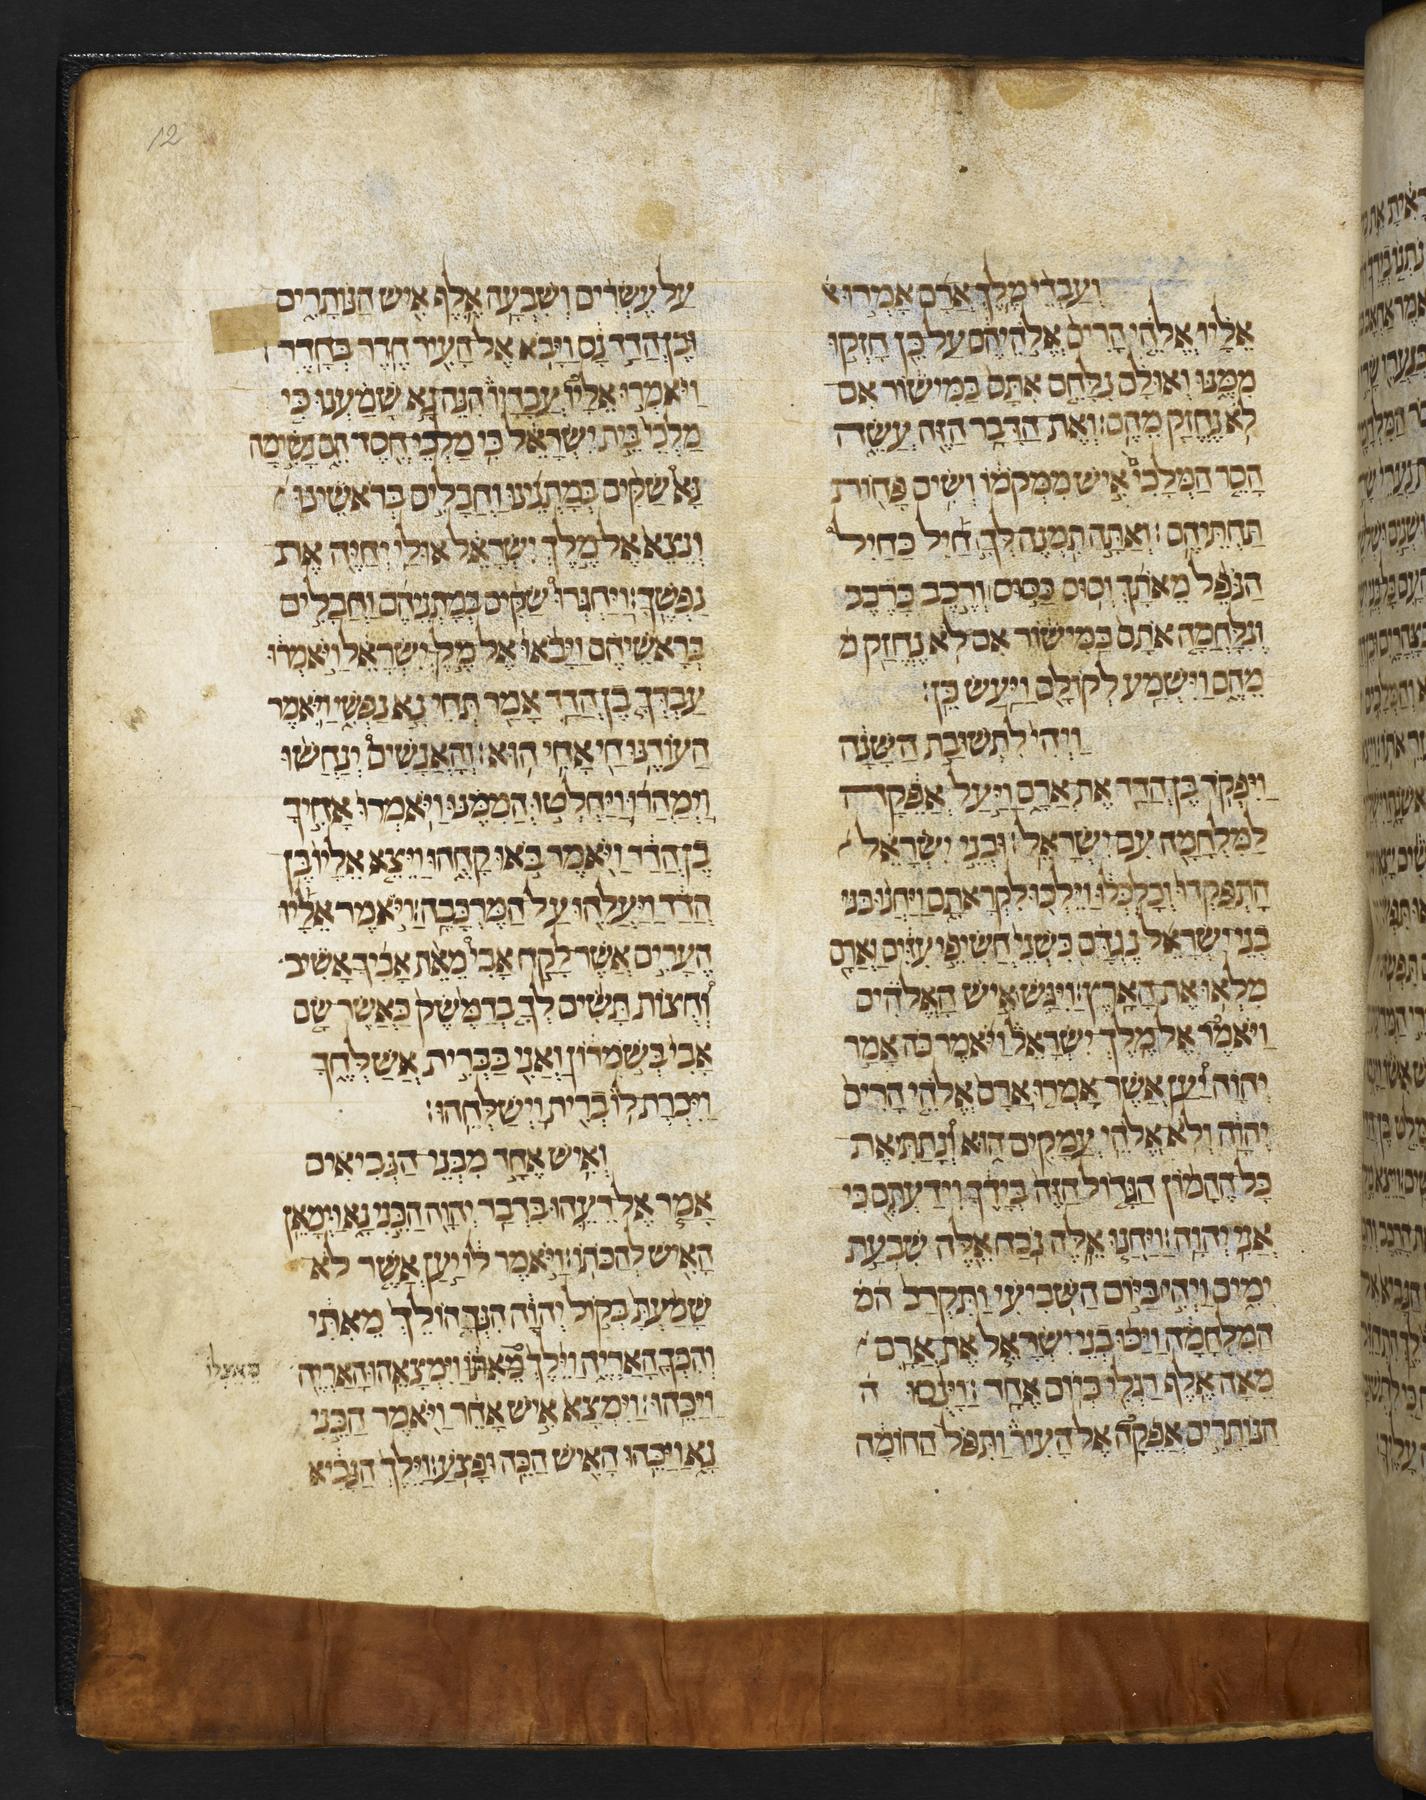 12
ועבדי מלך ארם אמרו א
אליו אלהי הרים אלהיהם על כן חזקו
ממנו ואולם נלחם אתם במישור אם
לא נחזק מהם׃ ואת הדבר הזה עשה
הסר המלכים איש ממקמו ושים פחות
תחתיהם׃ ואתה תמנה לך חיל כחיל
הנפל מאותך וסוס כסוס ורכב כרכב
ונלחמה אותם במישור אם לא נחזק מ
מהם וישמע לקולם ויעש כן׃
ויהי לתשובת השנה
ויפקד בן הדד את ארם ויעל אפקה
למלחמה עם ישראל׃ ובני ישראל
התפקדו וכלכלו וילכו לקראתם ויחנו בני
בני ישראל נגדם כשני חשיפי עזים וארם
מלאו את הארץ׃ ויגש איש האלהים
ויאמר אל מלך ישראל ויאמר כה אמר
יהוה יען אשר אמרו ארם אלהי הרים
יהוה ולא אלהי עמקים הוא ונתתי את
כל ההמון הגדול הזה בידך וידעתם כי
אני יהוה׃ ויחנו אלה נכח אלה שבעת
ימים ויהי ביום השביעי ותקרב המ
המלחמה ויכו בני ישראל את ארם
מאה אלף רגלי ביום אחד׃ וינסו ה
הנותרים אפקה אל העיר ותפל החומה
על עשרים ושבעה אלף איש הנותרים
ובן הדד נס ויבא אל העיר חדר בחדר׃
ויאמרו אליו עבדיו הנה נא שמענו כי
מלכי בית ישראל כי מלכי חסד הם נשימה
נא שקים במתנינו וחבלים בראשינו
ונצא אל מלך ישראל אולי יחיה את
נפשך׃ ויחגרו שקים במתניהם וחבלים
בראשיהם ויבאו אל מלך ישראל ויאמרו
עבדך בן הדד אמר תחי נא נפשי ויאמר
העודנו חי אחי הוא׃ והאנשים ינחשו
וימהרו ויחלטו הממנו ויאמרו אחיך
בן הדד ויאמר באו קחהו ויצא אליו בן
הדד ויעלהו על המרכבה׃ ויאמר אליו
הערים אשר לקח אבי מאת אביך אשיב
וחצות תשים לך בדמשק כאשר שם
אבי בשמרון ואני בברית אשלחך
ויכרת לו ברית וישלחהו׃
ואיש אחד מבני הנביאים
אמר אל רעהו בדבר יהוה הכני נא וימאן
האיש להכתו׃ ויאמר לו יען אשר לא
שמעת בקול יהוה הנך הולך מאתי
והכך האריה וילך מאתו וימצאהו האריה
מאצלו
ויכהו׃ וימצא איש אחר ויאמר הכני
נא ויכהו האיש הכה ופצע׃ וילך הנביא